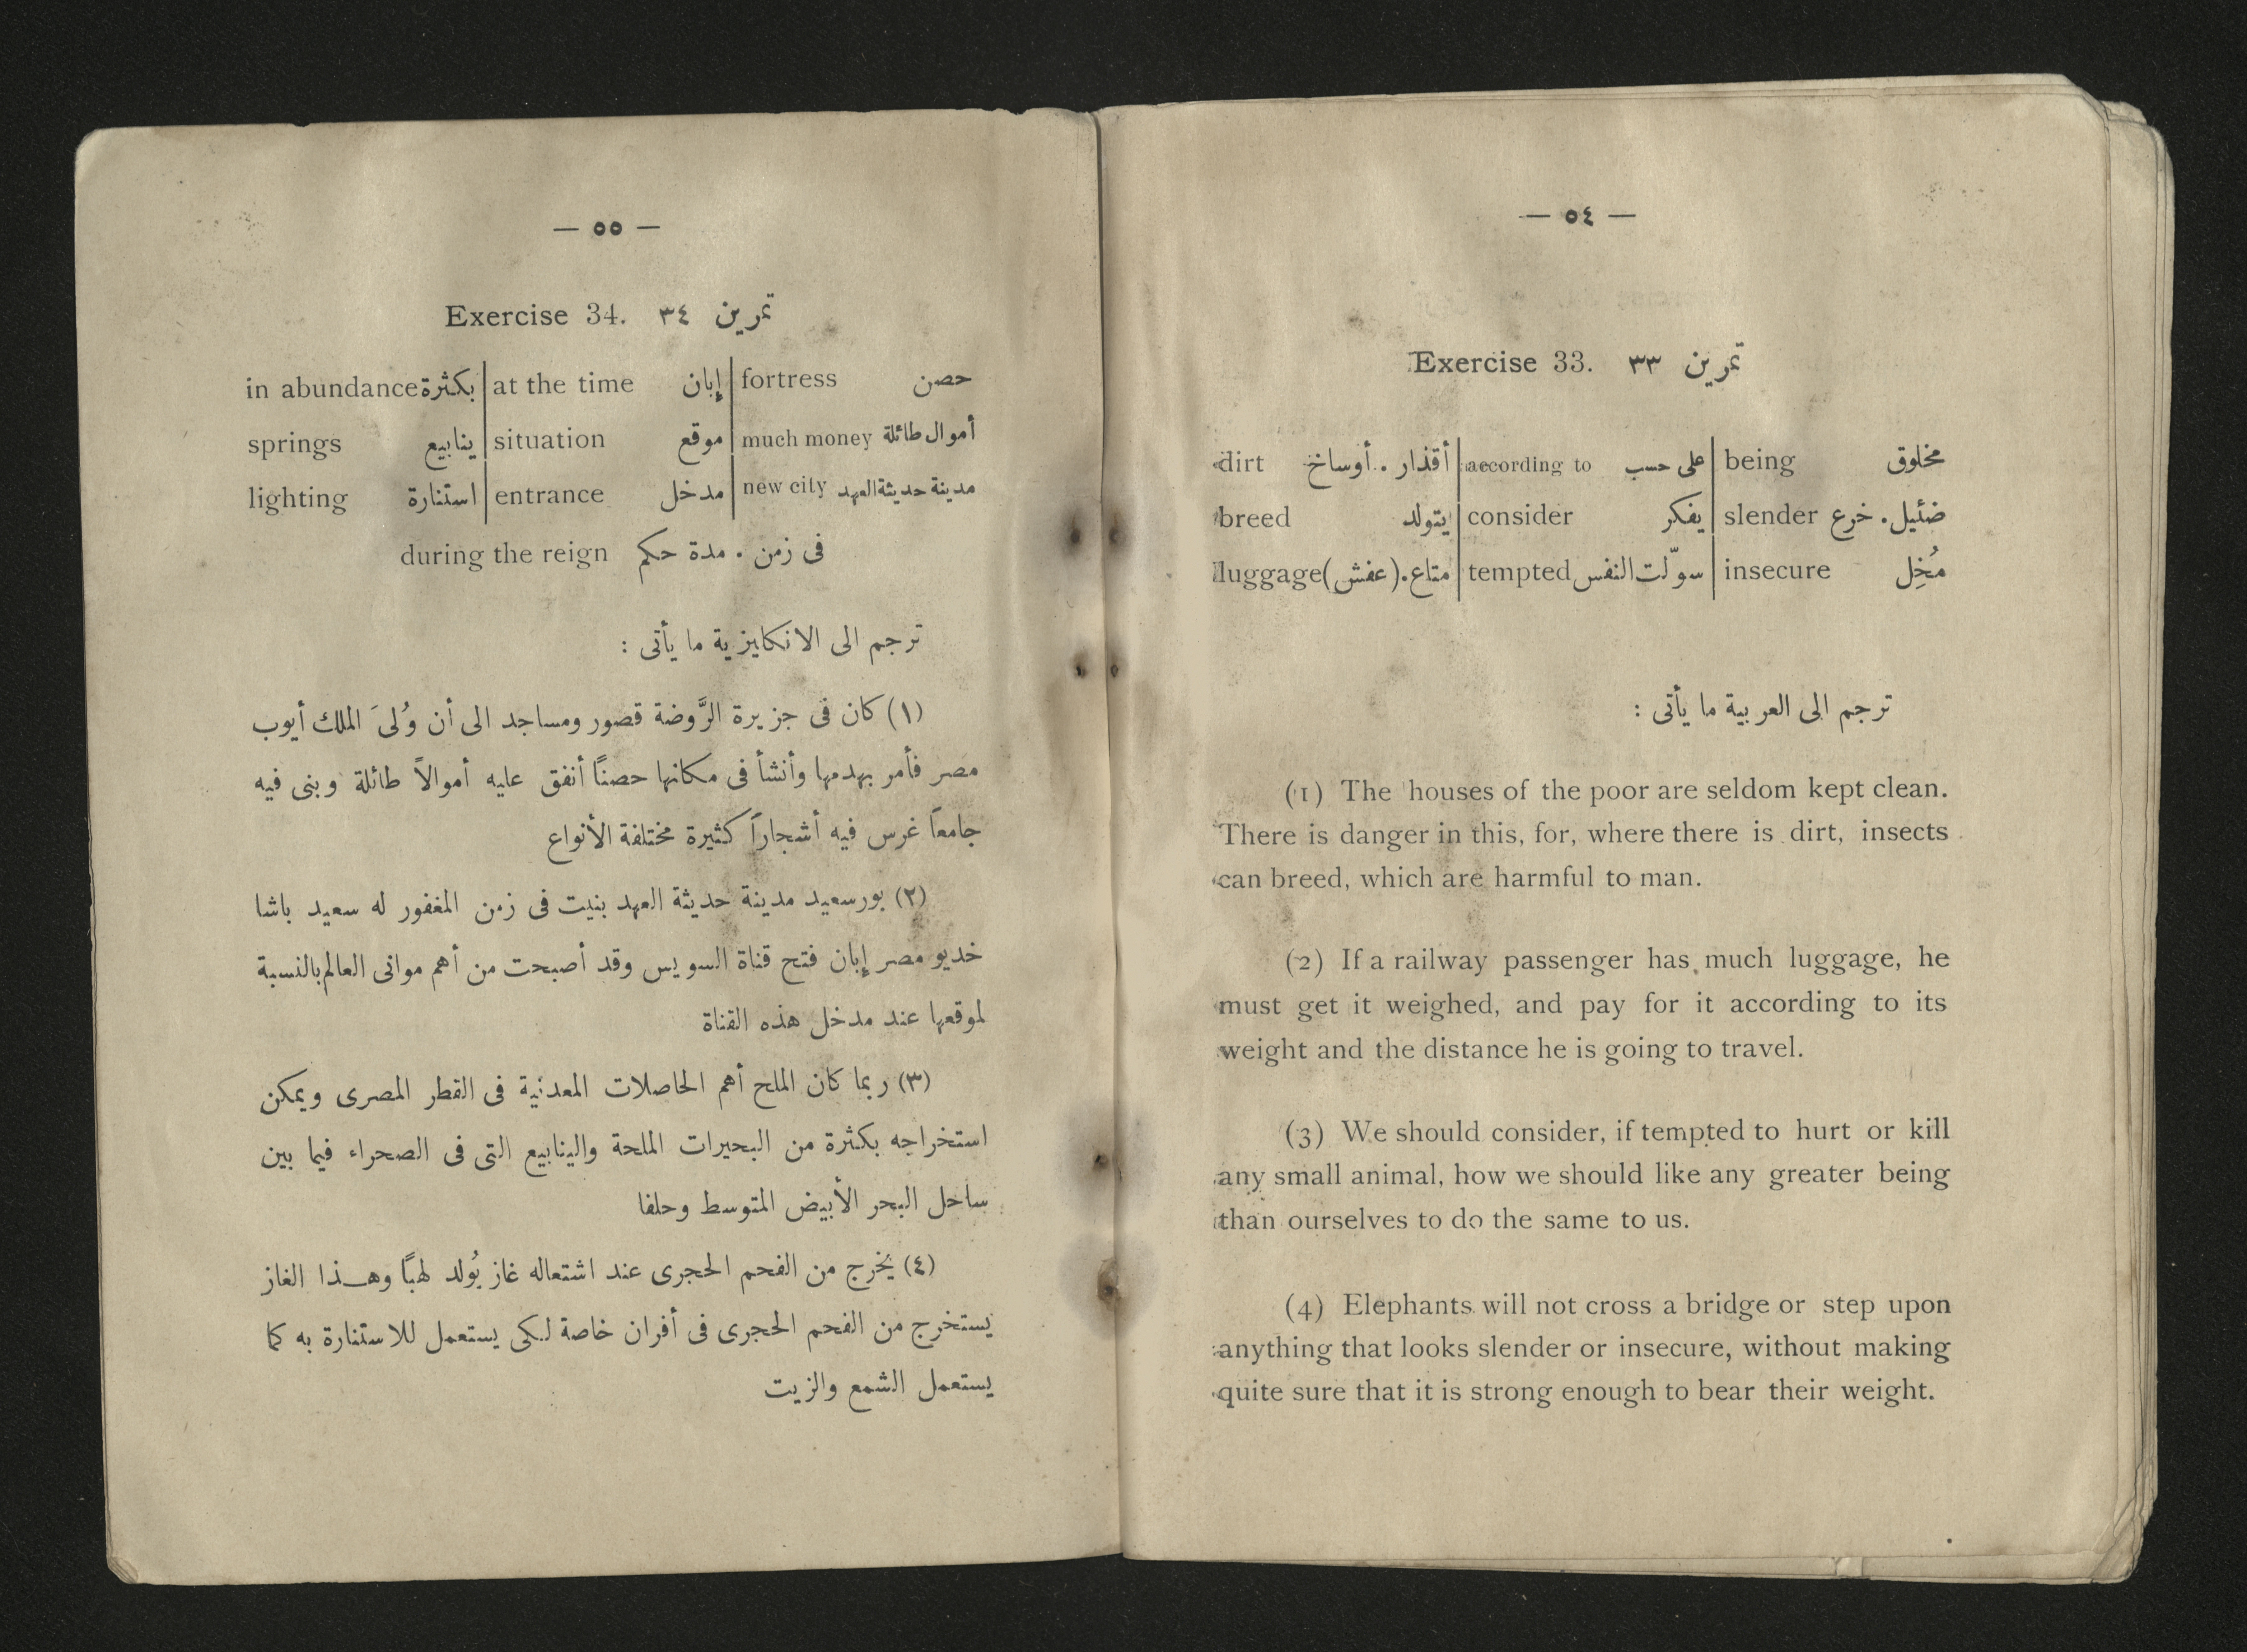 — ٥٤ —
Exercise 33. تمرين ٣٣
dirt أقذار . أوساخ | according to على حسب | being مخلوق
breed يتولد | consider يفكر | slender ضئيل . خرع
luggage متاع . (عفش) | tempted سوّلت النفس | insecure مُخِل
ترجم الى العربية ما يأتى :
(1) The houses of the poor are seldom kept clean.
There is danger in this, for, where there is dirt, insects
can breed, which are harmful to man.
(2) If a railway passenger has much luggage, he
must get it weighed, and pay for it according to its
weight and the distance he is going to travel.
(3) We should consider, if tempted to hurt or kill
any small animal, how we should like any greater being
than ourselves to do the same to us.
(4) Elephants will not cross a bridge or step upon
anything that looks slender or insecure, without making
quite sure that it is strong enough to bear their weight.
— ٥٥ —
Exercise 34. تمرين ٣٤
in abundance بكثرة | at the time إبان | fortress حصن
springs ينابيع | situation موقع | much money أموال طائلة
lighting استنارة | entrance مدخل | new city مدينة حديثة العهد
during the reign فى زمن . مدة حكم
ترجم الى الانكليزية ما يأتى :
(١) كان فى جزيرة الرَّوضة قصور ومساجد الى أن وُلىَ الملك أيوب
مصر فأمر بهدمها وأنشأ فى مكانها حصنًا أنفق عليه أموالاً طائلة وبنى فيه
جامعاً غرس فيه أشجاراً كثيرة مختلفة الأنواع
(٢) بورسعيد مدينة حديثة العهد بنيت فى زمن المغفور له سعيد باشا
خديو مصر إبان فتح قناة السويس وقد أصبحت من أهم موانى العالم بالنسبة
لموقعها عند مدخل هذه القناة
(٣) ربما كان الملح أهم الحاصلات المعدنية فى القطر المصرى ويمكن
استخراجه بكثرة من البحيرات الملحة والينابيع التى فى الصحراء فيما بين
ساحل البحر الأبيض المتوسط وحلفا
(٤) يخرج من الفحم الحجرى عند اشتعاله غاز يُولد لهبًا وهـذا الغاز
يستخرج من الفحم الحجرى فى أفران خاصة لكى يستعمل للاستنارة به كما
يستعمل الشمع والزيت